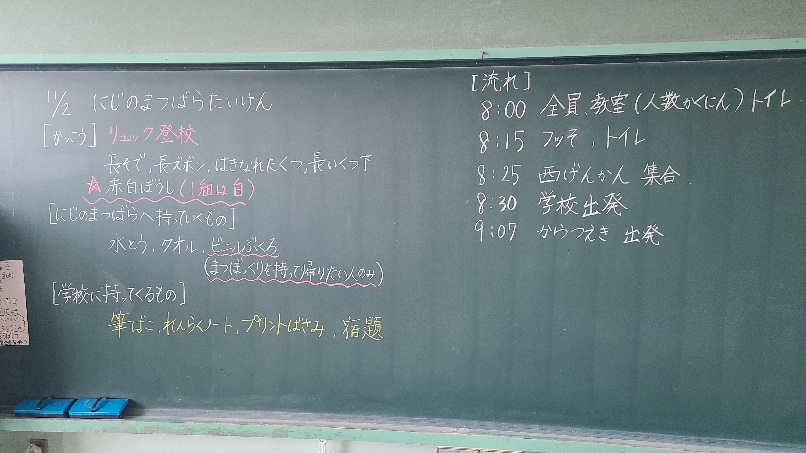 11/2 にじのまつばらたいけん
[かっこう] リュック登校
長そで,長ズボン,はきなれたくつ,長いくつ下
☆赤白ぼうし(1組は白)
[にじのまつばらへ持っていくもの]
水とう,タオル,ビニールぶくろ
(まつぼっくりを持って帰りたい人のみ)
[学校に持ってくるもの]
筆ばこ,れんらくノート,プリントばさみ,宿題
[流れ]
8:00 全員,教室(人数かくにん)トイレ
8:15 フッそ,トイレ
8:25 西げんかん 集合
8:30 学校出発
9:07 からつえき 出発